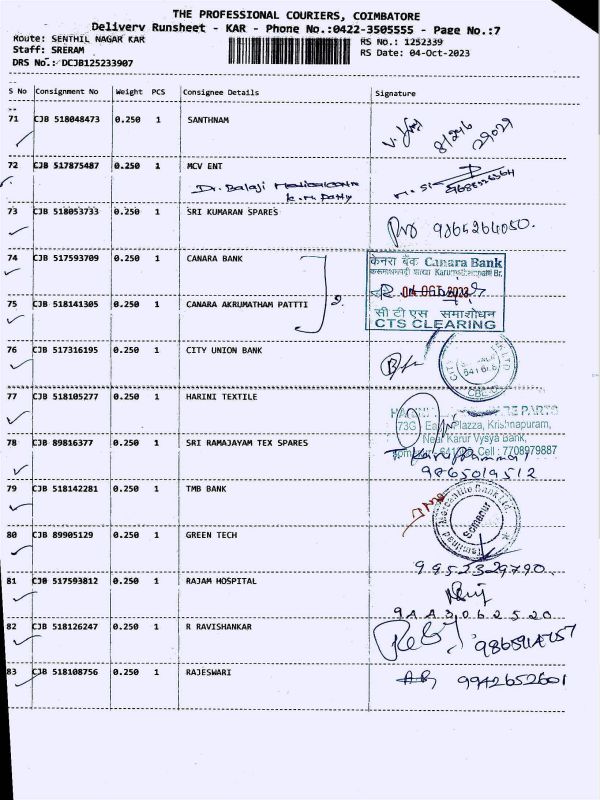 THE PROFESSIONAL COURIERS, COIMBATORE
Delivery Runsheet - KAR - Phone No.:0422-3505555 - Page No.:7
Route: SENTHIL NAGAR KAR
RS No.: 1252339
Staff: SRERAM
RS Date: 04-Oct-2023
DRS No.: DCJB125233907
S No Consignment No Weight PCS Consignee Details Signature
71 CJB 518048473 0.250 1 SANTHNAM
72 CJB 517875487 0.250 1 MCV ENT
Dr. Balaji
73 CJB 518053733 0.250 1 SRI KUMARAN SPARES
9865264050.
74 CJB 517593709 0.250 1 CANARA BANK
केनरा बैंक Canara Bank
04 OCT 2023
75 CJB 518141305 0.250 1 CANARA AKRUMATHAM PATTTI 2.
सी टी एस समाशोधन
CTS CLEARING
76 CJB 517316195 0.250 1 CITY UNION BANK
77 CJB 518105277 0.250 1 HARINI TEXTILE
73G Plazza, Krishnapuram,
Near Karur Vysya Bank,
78 CJB 89816377 0.250 1 SRI RAMAJAYAM TEX SPARES
Cell : 7708979887
9865019512
79 CJB 518142281 0.250 1 TMB BANK
Tamilnad Mercantile Bank Ltd.
Somanur
80 CJB 89905129 0.250 1 GREEN TECH
9952329790.
81 CJB 517593812 0.250 1 RAJAM HOSPITAL
82 CJB 518126247 0.250 1 R RAVISHANKAR
83 CJB 518108756 0.250 1 RAJESWARI
9942652601